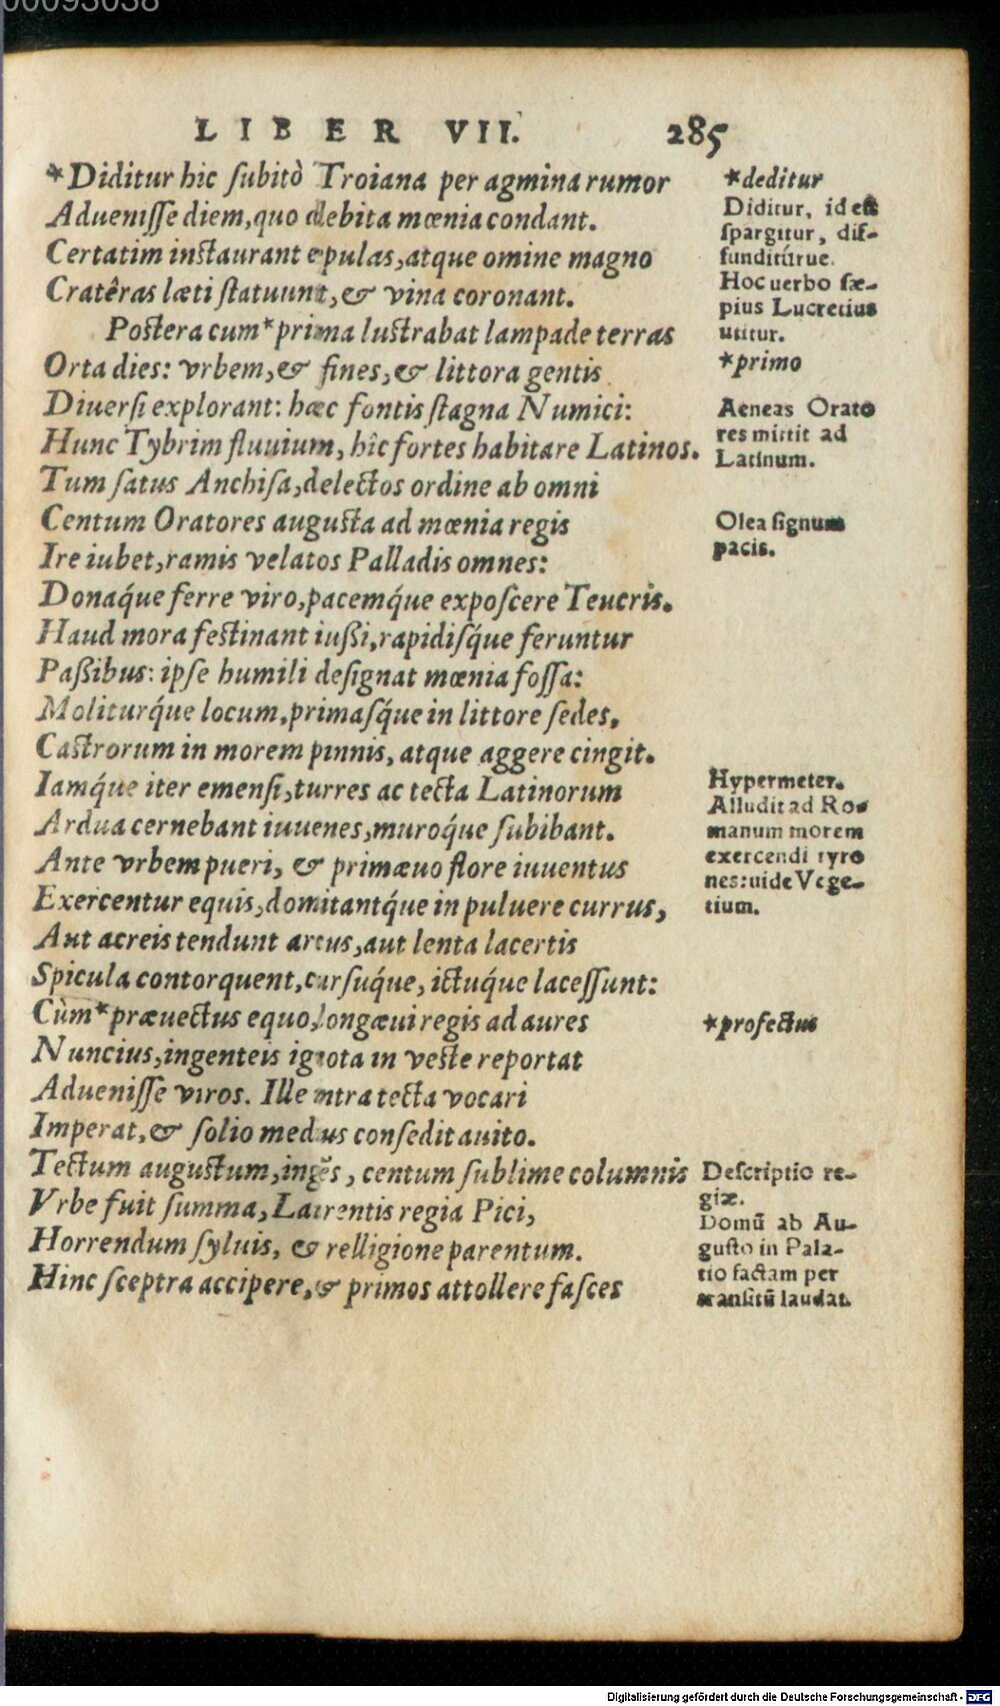 00093038
LIBER VII. 285
*Diditur hic subitò Troiana per agmina rumor
Aduenisse diem, quo debita mœnia condant.
Certatim instaurant epulas, atque omine magno
Cratêras læti statuunt, & vina coronant.
Postera cum *prima lustrabat lampade terras
Orta dies: vrbem, & fines, & littora gentis
Diuersi explorant: hæc fontis stagna Numici:
Hunc Tybrim fluuium, hîc fortes habitare Latinos.
Tum satus Anchisa, delectos ordine ab omni
Centum Oratores augusta ad mœnia regis
Ire iubet, ramis velatos Palladis omnes:
Donaq́ue ferre viro, pacemq́ue exposcere Teucris.
Haud mora festinant iußi, rapidisq́ue feruntur
Paßibus: ipse humili designat mœnia fossa:
Moliturq́ue locum, primasq́ue in littore sedes,
Castrorum in morem pinnis, atque aggere cingit.
Iamq́ue iter emensi, turres ac tecta Latinorum
Ardua cernebant iuuenes, muroq́ue subibant.
Ante vrbem pueri, & primæuo flore iuuentus
Exercentur equis, domitantq́ue in puluere currus,
Aut acreis tendunt arcus, aut lenta lacertis
Spicula contorquent, cursuq́ue, ictuq́ue lacessunt:
Cùm *præuectus equo, longæui regis ad aures
Nuncius, ingenteis ignota in veste reportat
Aduenisse viros. Ille intra tecta vocari
Imperat, & solio medius consedit auito.
Tectum augustum, ingẽs, centum sublime columnis
Vrbe fuit summa, Laurentis regia Pici,
Horrendum syluis, & relligione parentum.
Hinc sceptra accipere, & primos attollere fasces
*deditur
Diditur, id est
spargitur, dif-
funditúrue.
Hoc uerbo sæ-
pius Lucretius
utitur.
*primo
Aeneas Orato
res mittit ad
Latinum.
Olea signum
pacis.
Hypermeter.
Alludit ad Ro-
manum morem
exercendi tyro
nes: uide Vege-
tium.
*profectus
Descriptio re-
giæ.
Domũ ab Au-
gusto in Pala-
tio factam per
transitũ laudat.
Digitalisierung gefördert durch die Deutsche Forschungsgemeinschaft - DFG